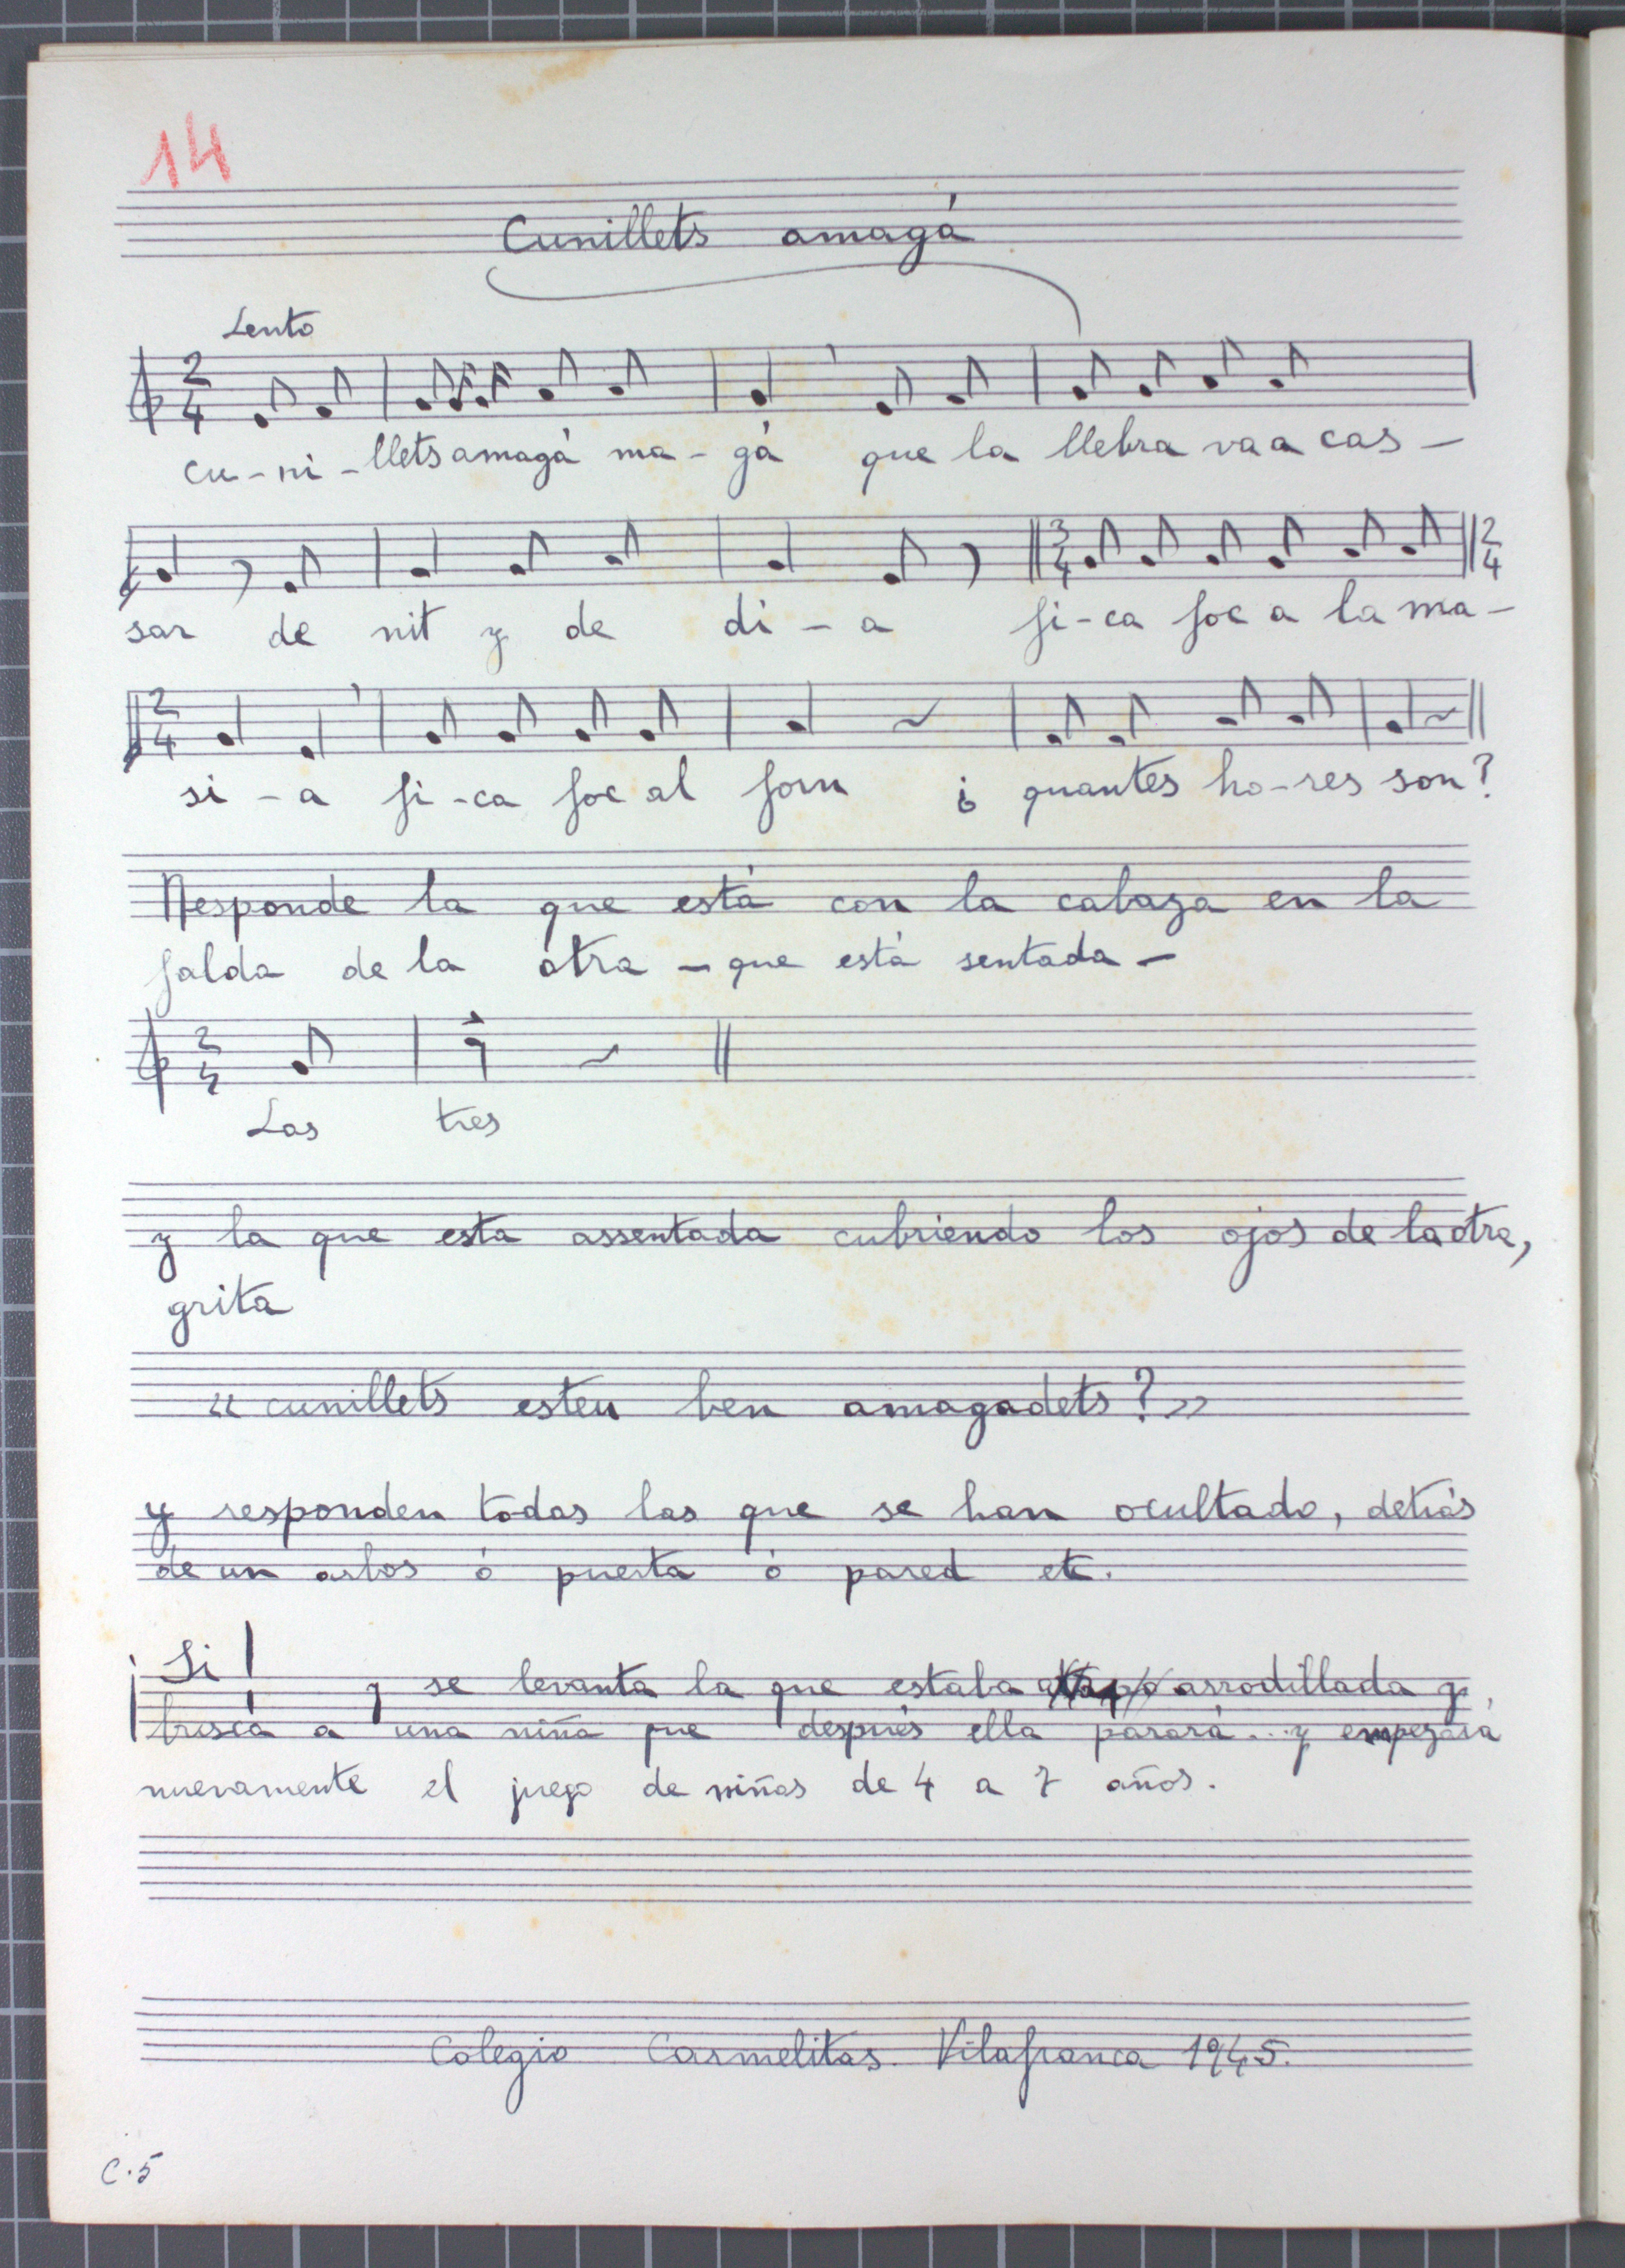 14
Cunillets amagá
Lento
2 4
cu-ni-llets amagá ma-gá que la llebra va a cas-
3 4 2 4
sar de nit y de di-a fi-ca foc a la ma-
2 4
si-a fi-ca foc al forn ¿ quantes ho-res son?
Responde la que está con la cabaza en la
falda de la otra - que está sentada -
2 4
Las tres
y la que esta assentada cubriendo los ojos de la otra,
grita
« cunillets esteu ben amagadets? »
y responden todas las que se han ocultado, detrás
de un arbos ó puerta ó pared etc.
¡ Si ! y se levanta la que estaba arrodillada y
busca a una niña que después ella parará... y empezará
nuevamente el juego de niñas de 4 a 7 años.
Colegio Carmelitas. Vilafranca 1945.
C.5